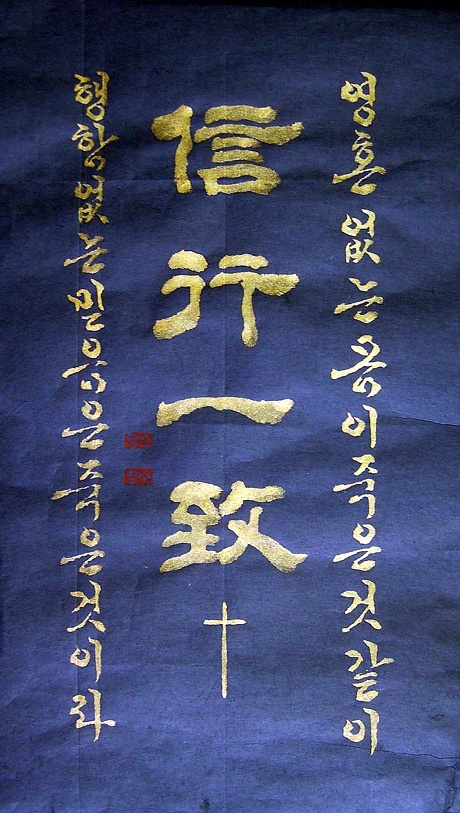 영혼 없는 몸이 죽은 것 같이
信行一致
행함 없는 믿음은 죽은 것이라